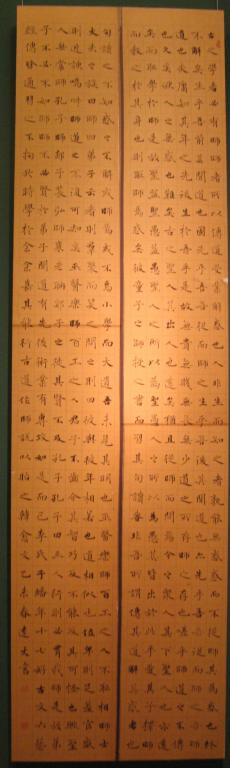 古之學者必有師師者所以傳道受業解惑也人非生而知之者孰能無惑惑而不從師其為惑也終
不解矣生乎吾前其聞道也固先乎吾吾從而師之生乎吾後其聞道也亦先乎吾吾從而師之吾師
道也夫庸知其年之先後生於吾乎是故無貴無賤無長無少道之所存師之所存也嗟乎師道之不傳
也久矣欲人之無惑也難矣古之聖人其出人也遠矣猶且從師而問焉今之眾人其下聖人也亦遠
矣而恥學於師是故聖益聖愚益愚聖人之所以為聖愚人之所以為愚其皆出於此乎愛其子擇師
而教之於其身也則恥師焉惑矣彼童子之師授之書而習其句讀者非吾所謂傳其道解其惑者也
句讀之不知惑之不解或師焉或不焉小學而大遺吾未見其明也巫醫樂師百工之人不恥相師士
大夫之族曰師曰弟子云者則群聚而笑之問之則曰彼與彼年相若也道相似也位卑則足羞官盛
則近諛嗚呼師道之不復可知矣巫醫樂師百工之人君子不齒今其智乃反不能及其可怪也歟聖
人無常師孔子師郯子萇弘師襄老聃郯子之徒其賢不及孔子孔子曰三人行則必有我師是故弟
子不必不如師師不必賢於弟子聞道有先後術業有專攻如是而已李氏子蟠年十七好古文六藝
經傳皆通習之不拘於時學於余余嘉其能行古道作師說以貽之韓愈文 未春達 書